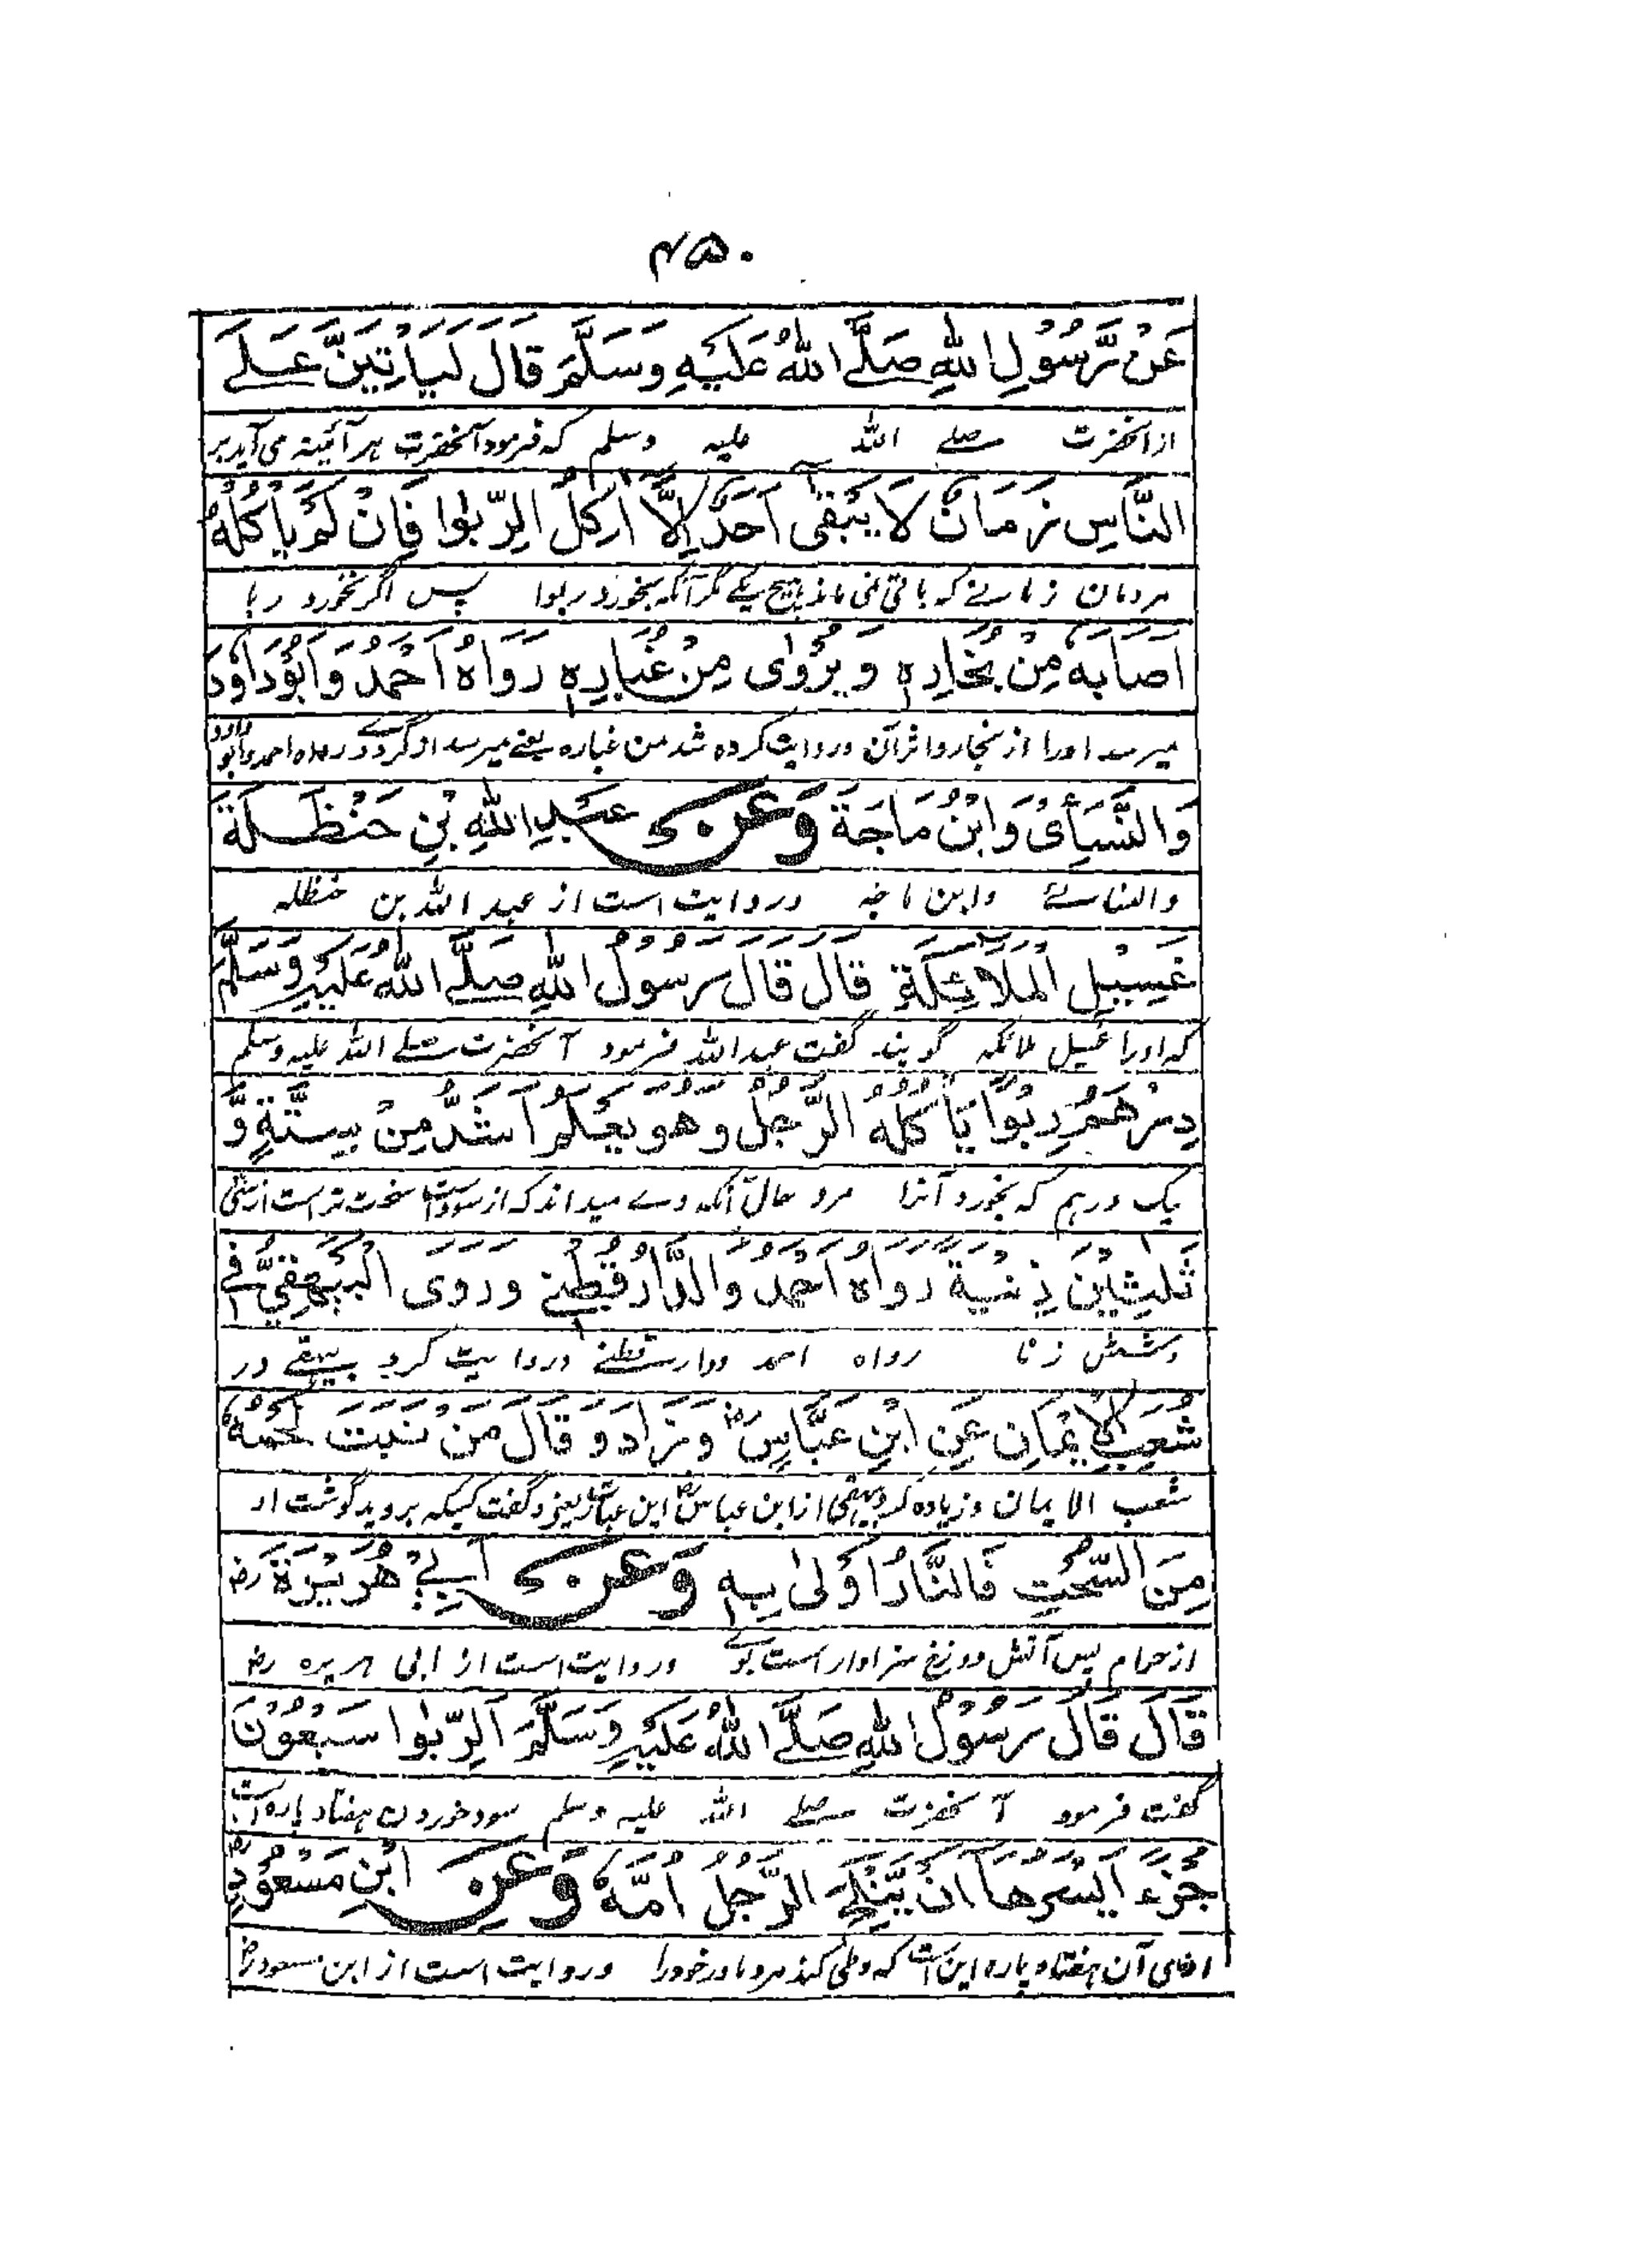 ۴۵۰
عَنْ رَّسُوْلِ اللّٰهِ صَلَّے اللّٰهُ عَلَيْهِ وَسَلَّمَ قَالَ لَيَأْتِيَنَّ عَلَے
از آنحضرت صلے اللہ علیہ وسلم کہ فرمود آنحضرت ہر آئینہ می آید بر
النَّاسِ زَمَانٌ لَا يَبْقٰى اَحَدٌ اِلَّا اٰكِلُ الرِّبٰوا فَاِنْ لَّمْ يَأْكُلْهُ
مردمان زمانے کہ باقی نمی ماند ہیچ یکے مگر آنکہ بخورد ربوا پس اگر نخورد ربا
اَصَابَهٗ مِنْ بُخَارِهٖ وَيُرْوٰى مِنْ غُبَارِهٖ رَوَاهُ اَحْمَدُ وَاَبُوْدَاوٗدَ
میرسد اورا از بخار و اثر آن و روایت کردہ شد من غبارہ یعنے میرسد او گردے رواہ احمد وابو داود
وَالنَّسَائِىُّ وَابْنُ مَاجَةَ وَعَنْ عَبْدِ اللّٰهِ بْنِ حَنْظَلَةَ
والنسائے وابن ماجہ و روایت است از عبد اللہ بن حنظلہ
غَسِيْلِ الْمَلَائِكَةِ قَالَ قَالَ رَسُوْلُ اللّٰهِ صَلَّے اللّٰهُ عَلَيْهِ وَسَلَّمَ
کہ اورا غسیل ملائکہ گویند گفت عبد اللہ فرمود آنحضرت صلے اللہ علیہ وسلم
دِرْهَمُ رِبٰوا يَأْكُلُهُ الرَّجُلُ وَهُوَ يَعْلَمُ اَشَدُّ مِنْ سِتَّةٍ وَّ
یک درہم کہ بخورد آنرا مرد حال آنکہ وے میداند کہ از سود است سخت تر است از سی
ثَلٰثِيْنَ زِنْيَةً رَوَاهُ اَحْمَدُ وَالدَّارُ قُطْنِے وَرَوَى الْبَيْهَقِيُّ فِے
وشش زنا رواہ احمد ودار قطنے و روایت کرد بیہقے در
شُعَبِ الْاِيْمَانِ عَنِ ابْنِ عَبَّاسٍ رض وَزَادَ وَقَالَ مَنْ نَبَتَ لَحْمُهٗ
شعب الایمان و زیادہ کرد بیہقی از ابن عباس رض ابن عباس نیز و گفت کسیکہ بروید گوشت او
مِنَ السُّحْتِ فَالنَّارُ اَوْلٰى بِهٖ وَعَنْ اَبِیْ هُرَيْرَةَ رض
از حرام پس آتش دوزخ سزاوار است بوے و روایت است از ابی ہریرہ رض
قَالَ قَالَ رَسُوْلُ اللّٰهِ صَلَّے اللّٰهُ عَلَيْهِ وَسَلَّمَ اَلرِّبٰوا سَبْعُوْنَ
گفت فرمود آنحضرت صلے اللہ علیہ وسلم سود خوردن ہفتاد پارہ است
جُزْءً اَيْسَرُهَا اَنْ يَّنْكِحَ الرَّجُلُ اُمَّهٗ وَعَنِ ابْنِ مَسْعُوْدٍ رض
ادنای آن ہفتاد پارہ این است کہ وطی کند مرد مادر خود را و روایت است از ابن مسعود رض